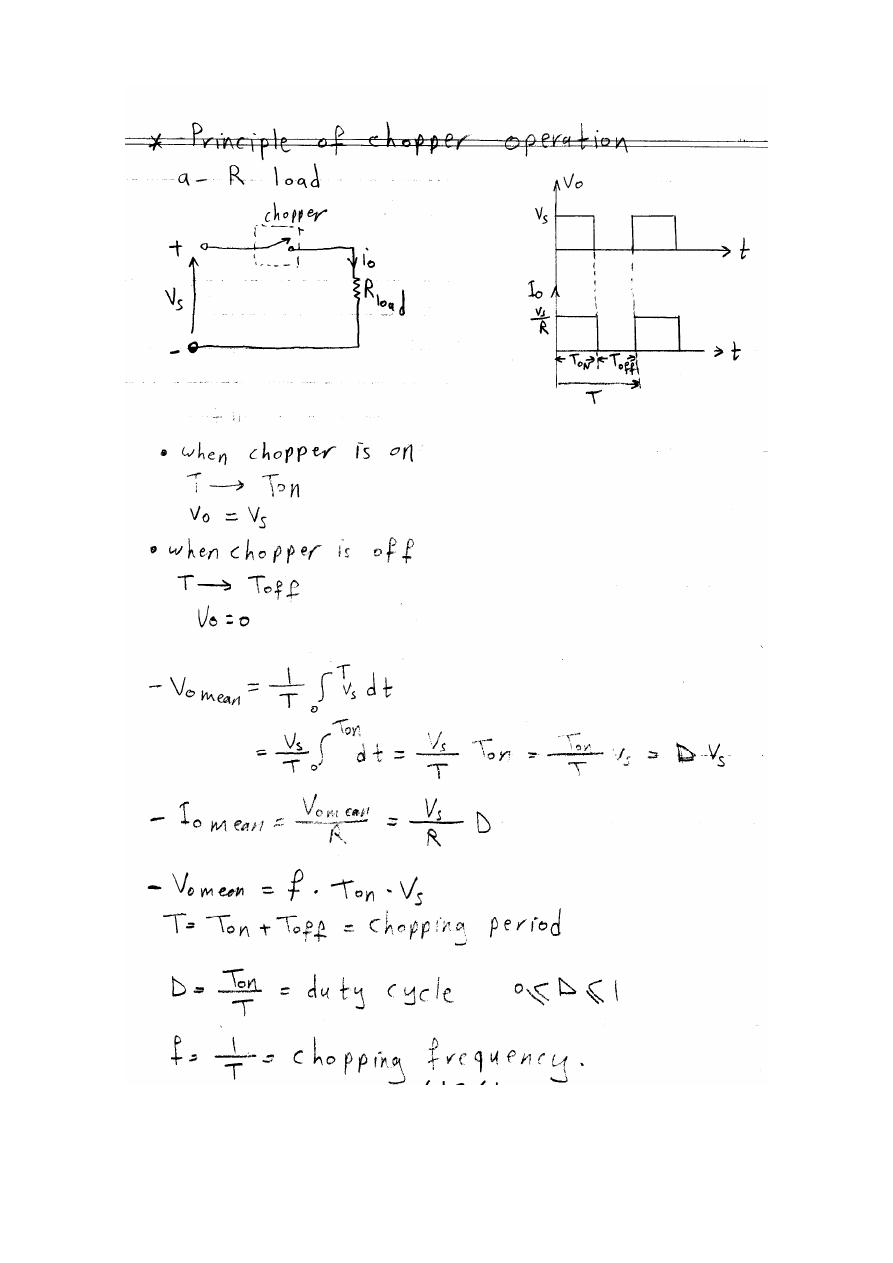 * Principle of chopper operation
a- R load
chopper
+
io
Vs
Rload
-
Vo
Vs
t
Io
Vs/R
t
TON Toff
T
• when chopper is on
T → Ton
Vo = Vs
• when chopper is off
T → Toff
Vo = 0
- Vo mean = 1/T ∫₀ᵀ Vs dt
= Vs/T ∫₀ᵀᵒⁿ dt = Vs/T Ton = Ton/T Vs = D Vs
- Io mean = Vo mean/R = Vs/R D
- Vo mean = f . Ton . Vs
T = Ton + Toff = chopping period
D = Ton/T = duty cycle 0 ≤ D ≤ 1
f = 1/T = chopping frequency.